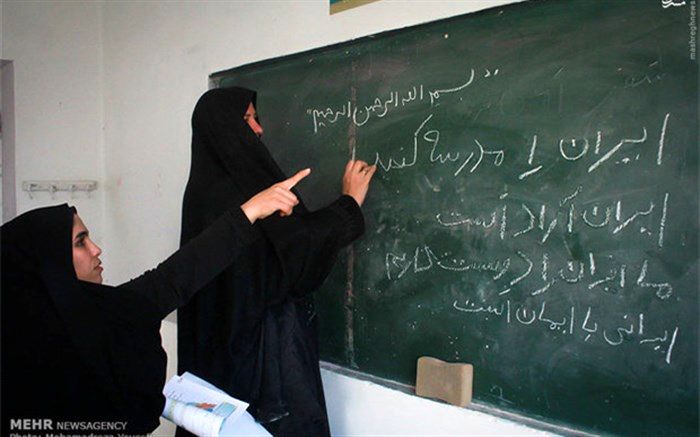 "بسم الله الرحمن الرحیم"
ایران را مدرسه کنید
ایران آزاد است
ما ایران را دوست داریم
ایرانی با ایمان است
mashreghnews
MEHR NEWSAGENCY
Photo: Mohamadreza